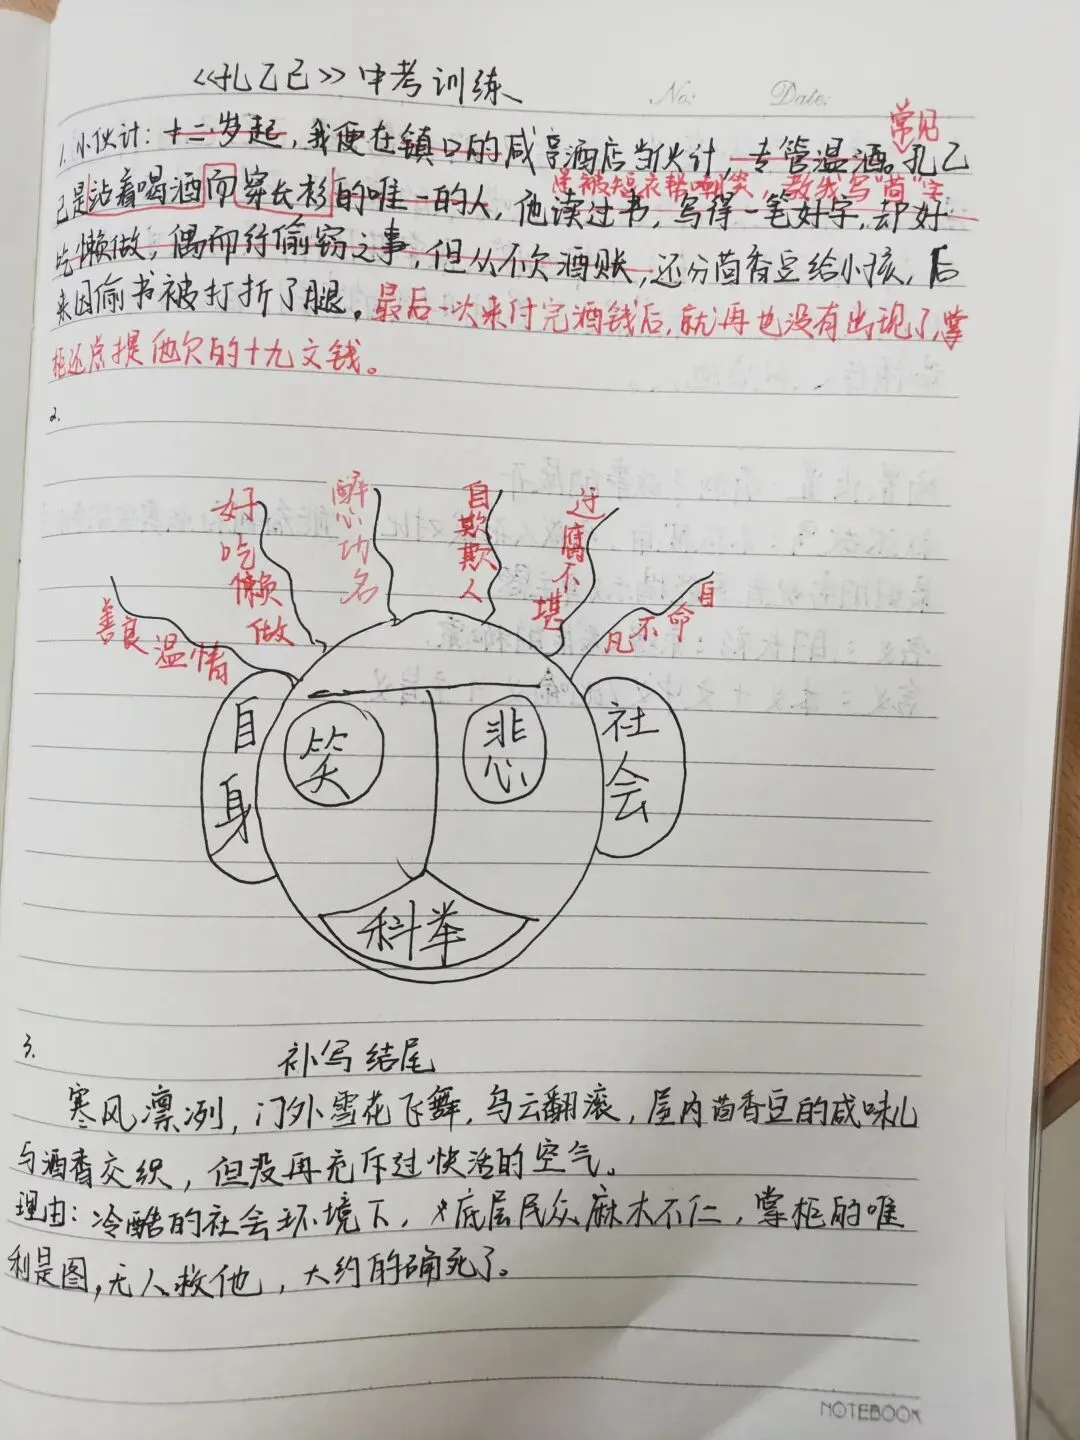 《孔乙己》中考训练
No:
Date:
常见
1.小伙计：十二岁起，我便在镇口的咸亨酒店当伙计，专管温酒。孔乙
被短衣帮嘲笑，教我写"茴"字
己是站着喝酒而穿长衫的唯一的人，他读过书，写得一笔好字，却好
吃懒做，偶而行偷窃之事，但从不欠酒账，还分茴香豆给小孩，后
来因偷书被打折了腿。最后一次来付完酒钱后，就再也没有出现了，掌
柜还总提他欠的十九文钱。
2.
善良温情
好吃懒做
醉心功名
自欺欺人
迂腐不堪
自命不凡
自身
笑
悲
社会
科举
3.
补写结尾
寒风凛冽，门外雪花飞舞，乌云翻滚，屋内茴香豆的咸味儿
与酒香交织，但没再充斥过快活的空气。
理由：冷酷的社会环境下，底层民众麻木不仁，掌柜的唯
利是图，无人救他，大约的确死了。
NOTEBOOK